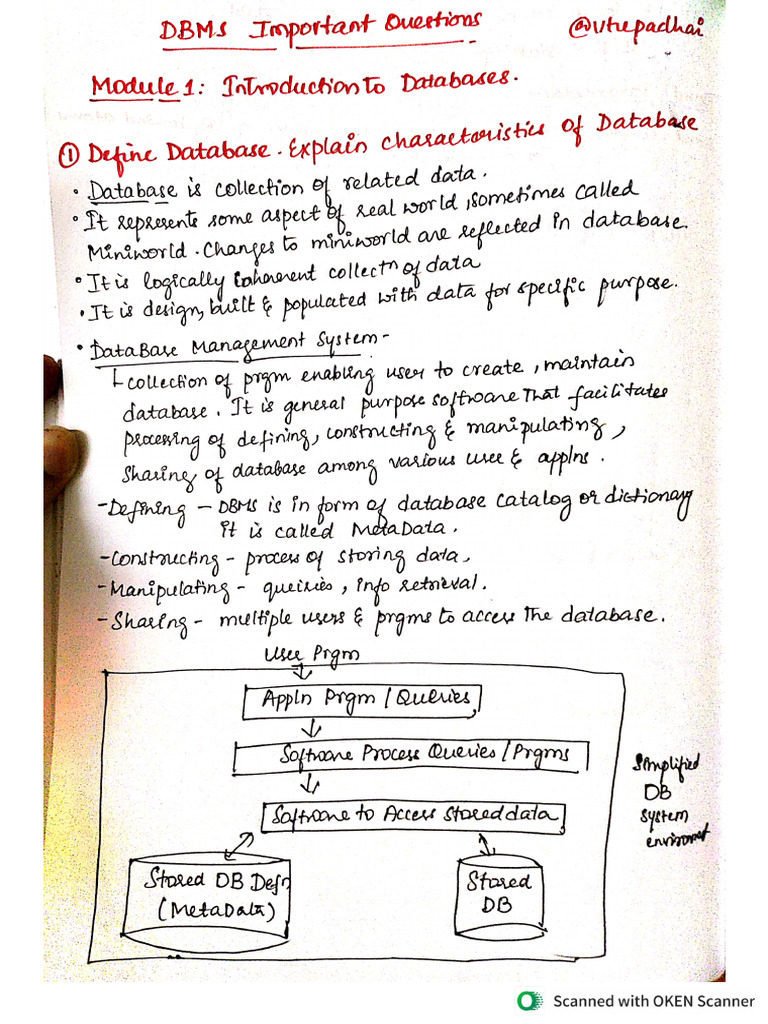 DBMS Important Questions
@vtupadhai
Module 1: Introduction to Databases.
① Define Database. Explain characteristics of Database
• Database is collection of related data.
• It represents some aspect of real world, sometimes called
Miniworld. Changes to miniworld are reflected in database.
• It is logically coherent collectn of data
• It is design, built & populated with data for specific purpose.
• DataBase Management System -
collection of prgm enabling user to create, maintain
database. It is general purpose software that facilitates
processing of defining, constructing & manipulating,
sharing of database among various user & applns.
- Defining - DBMS is in form of database catalog or dictionary
it is called MetaData.
- Constructing - process of storing data.
- Manipulating - queiries, info retrieval.
- Sharing - multiple users & prgms to access the database.
User Prgm
Appln Prgm / Queries
Software Process Queries / Prgms
Software to Access Stored data
Simplified
DB
system
enviromet
Stored DB Defn
(MetaData)
Stored
DB
Scanned with OKEN Scanner